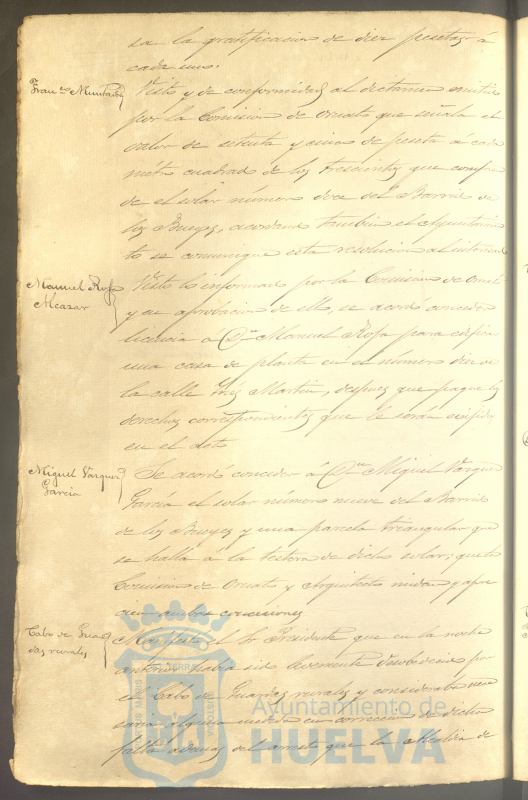 sa la gratificacion de diez pesetas á
cada uno.
Fran.co Muntadas
Visto y de conformidad al dictamen emitido
por la Comision de Ornato que señala el
valor de setenta y cinco de peseta á cada
métro cuadrado de los trescientos que compren-
de el solar número doce del Barrio de
los Bueyes, acordaron tambien el Ayuntamien-
to se comunique esta resolucion al interesado
Manuel Rofa
Alcazar
Visto lo informado por la Comision de Ornato
y en aprobacion de ello, se acordó conceder
licencia á Dn Manuel Rofa para edificar
una casa de planta en el número diez de
la calle Inés Martin, despues que pague los
derechos correspondientes que le seran exigidos
en el acto
Miguel Vazquez
Garcia
Se acordó conceder á Dn Miguel Vazquez
Garcia el solar número nueve del Barrio
de los Bueyes y una parcela triangular que
se halla á la testera de dicho solar, que la
Comision de Ornato y Arquitecto midan y apre-
cien ambas concesiones
Cabo de Guar-
das rurales
Manifestó el Sr Presidente que en la noche
anterior habia sido levemente desobedecido por
el Cabo de Guardas rurales y consideraba nece-
saria alguna medida en correccion de dicha
falta ademas del arresto que la Alcaldia de
Ayuntamiento de
HUELVA